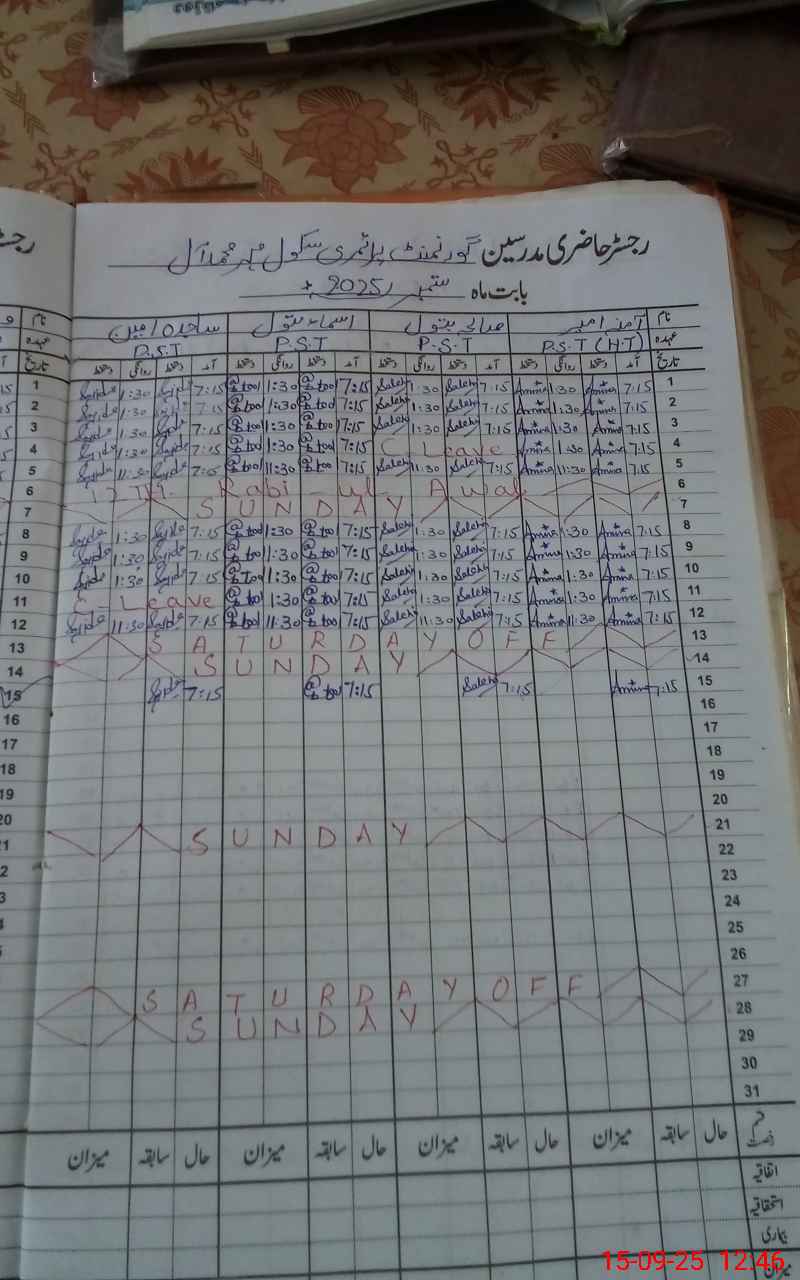 رجسٹر حاضری مدرسین گورنمنٹ پرائمری سکول مہر محمد آل
بابت ماہ ستمبر 2025ء
نام آمنہ امیر صالحہ بتول اسماء بتول ساجدہ امین نام
عہدہ P.S.T (H.T) P.S.T P.S.T P.S.T عہدہ
تاریخ آمد دستخط روانگی دستخط آمد دستخط روانگی دستخط آمد دستخط روانگی دستخط آمد دستخط روانگی دستخط تاریخ
1 Sajida 1:30 Sajida 7:15 @tool 1:30 @tool 7:15 Saleha 1:30 Saleha 7:15 Amina 1:30 Amina 7:15 1
2 Sajida 1:30 Sajida 7:15 @tool 1:30 @tool 7:15 Saleha 1:30 Saleha 7:15 Amina 1:30 Amina 7:15 2
3 Sajida 1:30 Sajida 7:15 @tool 1:30 @tool 7:15 Saleha 1:30 Saleha 7:15 Amina 1:30 Amina 7:15 3
4 Sajida 1:30 Sajida 7:15 @tool 1:30 @tool 7:15 C. Leave Amina 1:30 Amina 7:15 4
5 Sajida 11:30 Sajida 7:15 @tool 11:30 @tool 7:15 Saleha 11:30 Saleha 7:15 Amina 11:30 Amina 7:15 5
6 12th. Rabi-ul-Awal 6
7 SUNDAY 7
8 Sajida 1:30 Sajida 7:15 @tool 1:30 @tool 7:15 Saleha 1:30 Saleha 7:15 Amina 1:30 Amina 7:15 8
9 Sajida 1:30 Sajida 7:15 @tool 1:30 @tool 7:15 Saleha 1:30 Saleha 7:15 Amina 1:30 Amina 7:15 9
10 Sajida 1:30 Sajida 7:15 @Tool 1:30 @tool 7:15 Saleha 1:30 Saleha 7:15 Amina 1:30 Amina 7:15 10
11 C. Leave @tool 1:30 @tool 7:15 Saleha 1:30 Saleha 7:15 Amina 1:30 Amina 7:15 11
12 Sajida 11:30 Sajida 7:15 @tool 11:30 @tool 7:15 Saleha 11:30 Saleha 7:15 Amina 11:30 Amina 7:15 12
13 SATURDAY OFF 13
14 SUNDAY 14
15 Sajida 7:15 @tool 7:15 Saleha 7:15 Amina 7:15 15
16 16
17 17
18 18
19 19
20 20
21 SUNDAY 21
22 22
23
24
25
26
SATURDAY OFF 27
SUNDAY 28
29
30
31
قسم رخصت حال سابقہ میزان حال سابقہ میزان حال سابقہ میزان حال سابقہ میزان
اتفاقیہ
استحقاقیہ
بیماری
میزان
15-09-25 12:46